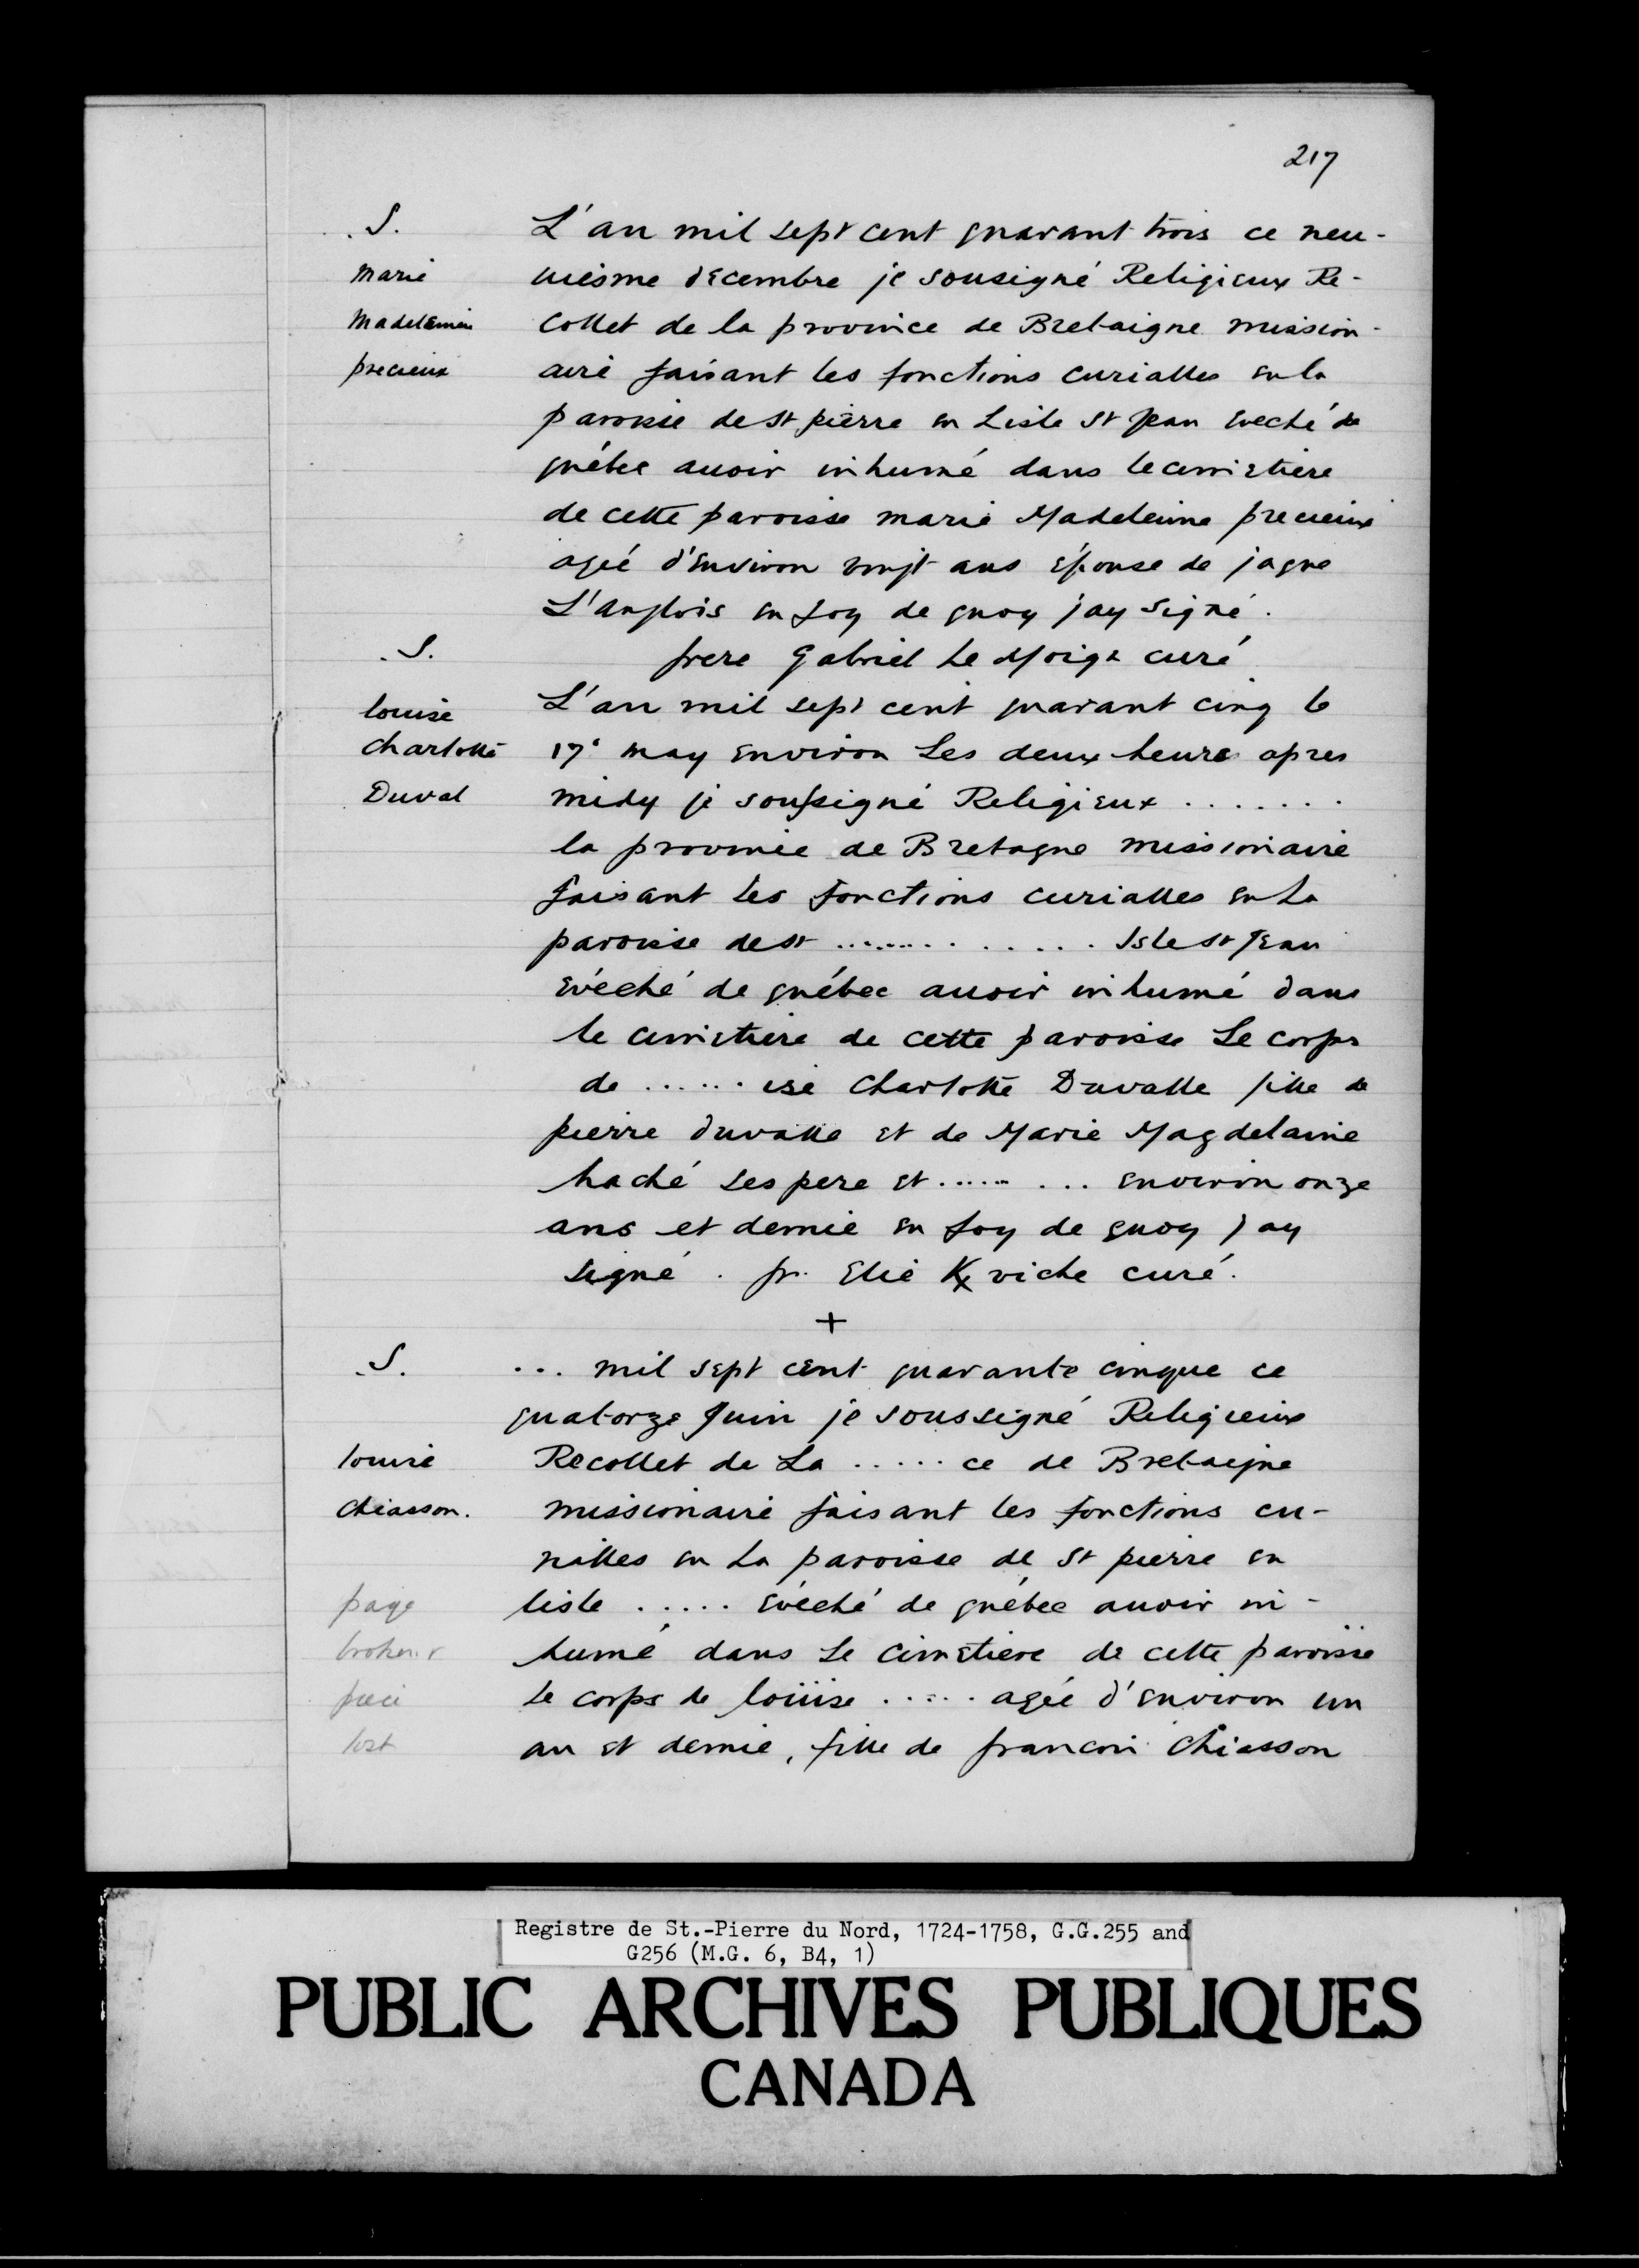 217
S.
marie
Madeleinne
precieux
L'an mil sept cent quarant trois ce neu-
uiésme decembre je sousigné Religieux Re-
collet de la province de Bretaigne mission-
aire faisant les fonctions curialles en la
paroisse de st pierre en Lisle st Jean eveché de
québec auoir inhumé dans le cimetiere
de cette paroisse marie Madeleinne precieux
agée d'environ vingt ans épouse de jaque
L'anglois en foy de quoy jay signé.
frere Gabriel Le Moign curé
S.
louise
charlotte
Duval
L'an mil sept cent quarant cinq le
17e may environ Les deux heures apres
midy je soussigné Religieux .......
la province de Bretagne missionaire
faisant les fonctions curialles en La
paroisse de st ............. Isle st Jean
évéché de québec auoir inhumé dans
le cimetiere de cette paroisse Le corps
de ...... ise Charlotte Duvalle fille de
pierre duvalle et de Marie Magdelaine
haché ses pere et ......... environ onze
ans et demie en foy de quoy jay
signé. fr. Elie K viche curé.
+
S.
louise
chiasson.
... mil sept cent quarante cinque ce
quatorze Juin je soussigné Religieux
Recollet de La ..... ce de Bretaigne
missionaire faisant les fonctions cu-
rialles en La paroisse de St pierre en
lisle ..... évéché de québec auoir in-
humé dans Le cimetiere de cette paroisse
Le corps de loüise ..... agée d'environ un
an et demie, fille de francois Chiasson
page
broken &
piece
lost
Registre de St.-Pierre du Nord, 1724-1758, G.G.255 and
G256 (M.G. 6, B4, 1)
PUBLIC ARCHIVES PUBLIQUES
CANADA